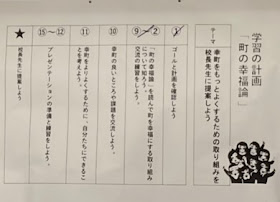 学習の計画
「町の幸福論」
テーマ
幸町をもっとよくするための取り組みを
校長先生に提案しよう
①
ゴールと計画を確認しよう
②〜⑨
「町の幸福論」を読んで町を幸福にする取り組み
について知ろう
交流の練習をしよう。
⑩
町の良いところや課題を交流しよう。
⑪
幸町をよりよくするために、自分たちにできるこ
とを考えよう。
⑫〜⑮
プレゼンテーションの準備と練習をしよう。
★
校長先生に提案しよう